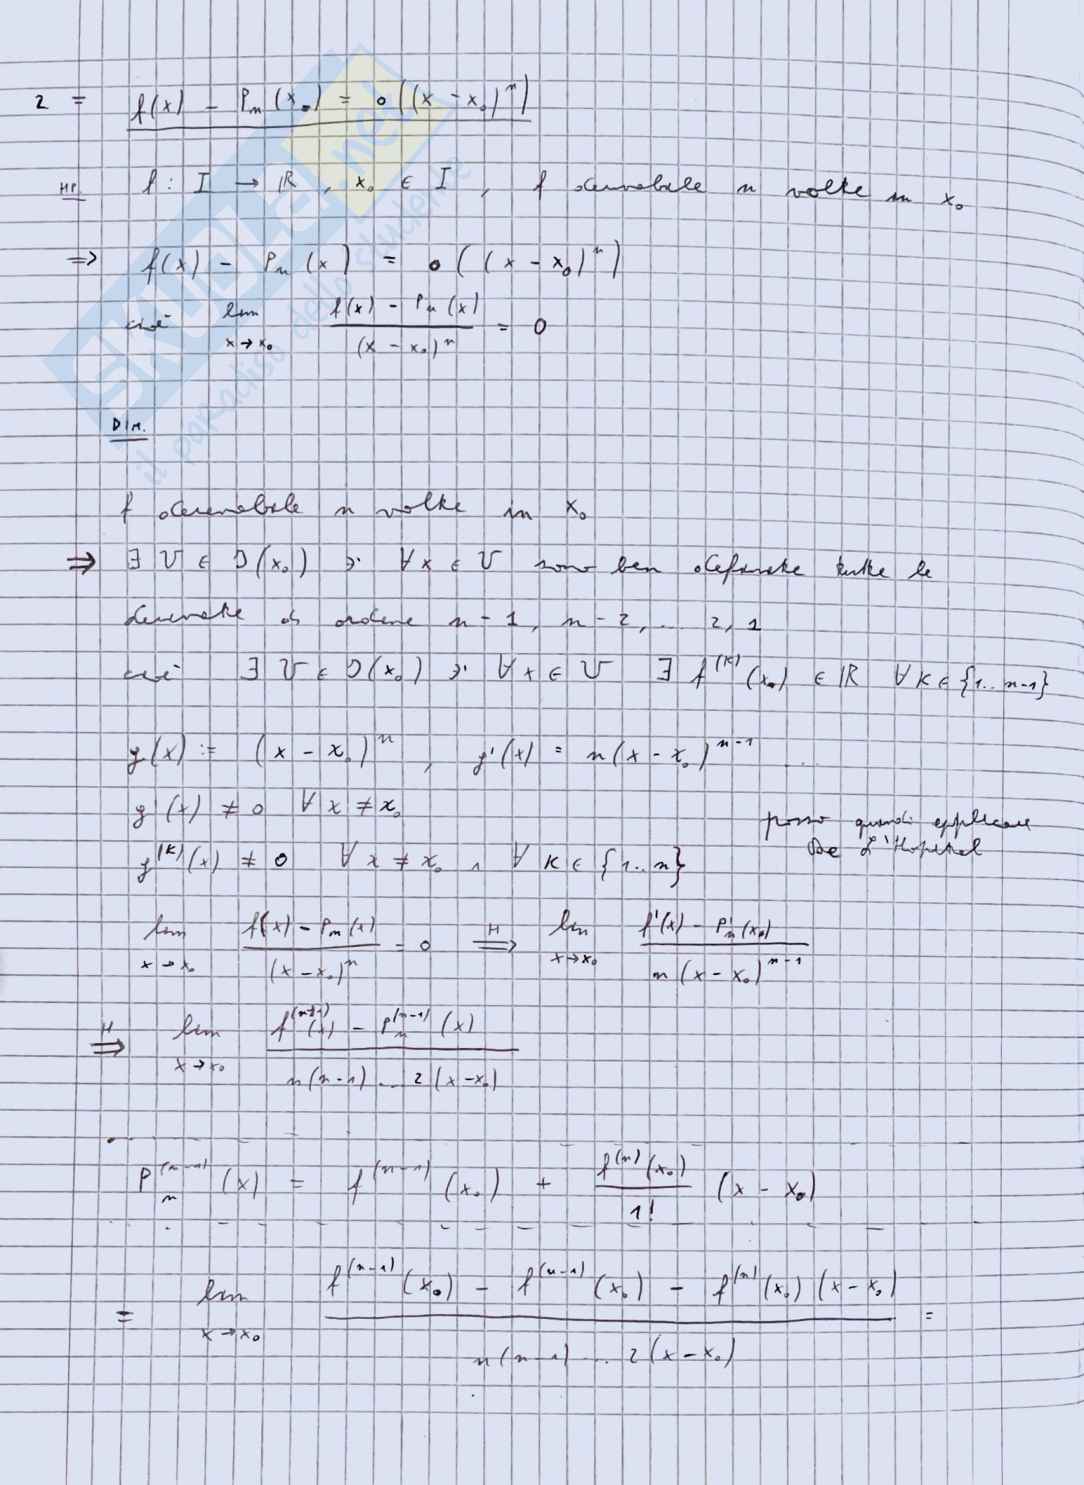 2 = f(x) - Pn(x₀) = o((x - x₀)ⁿ)
HP. f : I → ℝ, x₀ ∈ I, f derivabile n volte in x₀
⇒ f(x) - Pn(x) = o((x - x₀)ⁿ)
cioè lim x→x₀ (f(x) - Pn(x)) / (x - x₀)ⁿ = 0
DIM.
f derivabile n volte in x₀
⇒ ∃ U ∈ J(x₀) ∋' ∀x ∈ U sono ben definite tutte le
derivate di ordine n-1, n-2, ... 2, 1
cioè ∃ U ∈ J(x₀) ∋' ∀x ∈ U ∃ f⁽ᴷ⁾(x₀) ∈ ℝ ∀K ∈ {1..n-1}
g(x) := (x - x₀)ⁿ, g'(x) = n(x - x₀)ⁿ⁻¹ ...
g(x) ≠ 0 ∀x ≠ x₀
posso quindi applicare
De L'Hopital
g⁽ᴷ⁾(x) ≠ 0 ∀x ≠ x₀ ∧ ∀K ∈ {1..n}
lim x→x₀ (f(x) - Pn(x)) / (x - x₀)ⁿ = 0 ⇒ᴴ lim x→x₀ (f'(x) - P'n(x₀)) / n(x - x₀)ⁿ⁻¹
⇒ᴴ lim x→x₀ (f⁽ⁿ⁻¹⁾(x) - Pn⁽ⁿ⁻¹⁾(x)) / n(n-1)...2(x-x₀)
Pn⁽ⁿ⁻¹⁾(x) = f⁽ⁿ⁻¹⁾(x₀) + f⁽ⁿ⁾(x₀)/1! (x - x₀)
= lim x→x₀ (f⁽ⁿ⁻¹⁾(x₀) - f⁽ⁿ⁻¹⁾(x₀) - f⁽ⁿ⁾(x₀)(x - x₀)) / n(n-1)...2(x-x₀) =
skuola.net
il paradiso dello studente